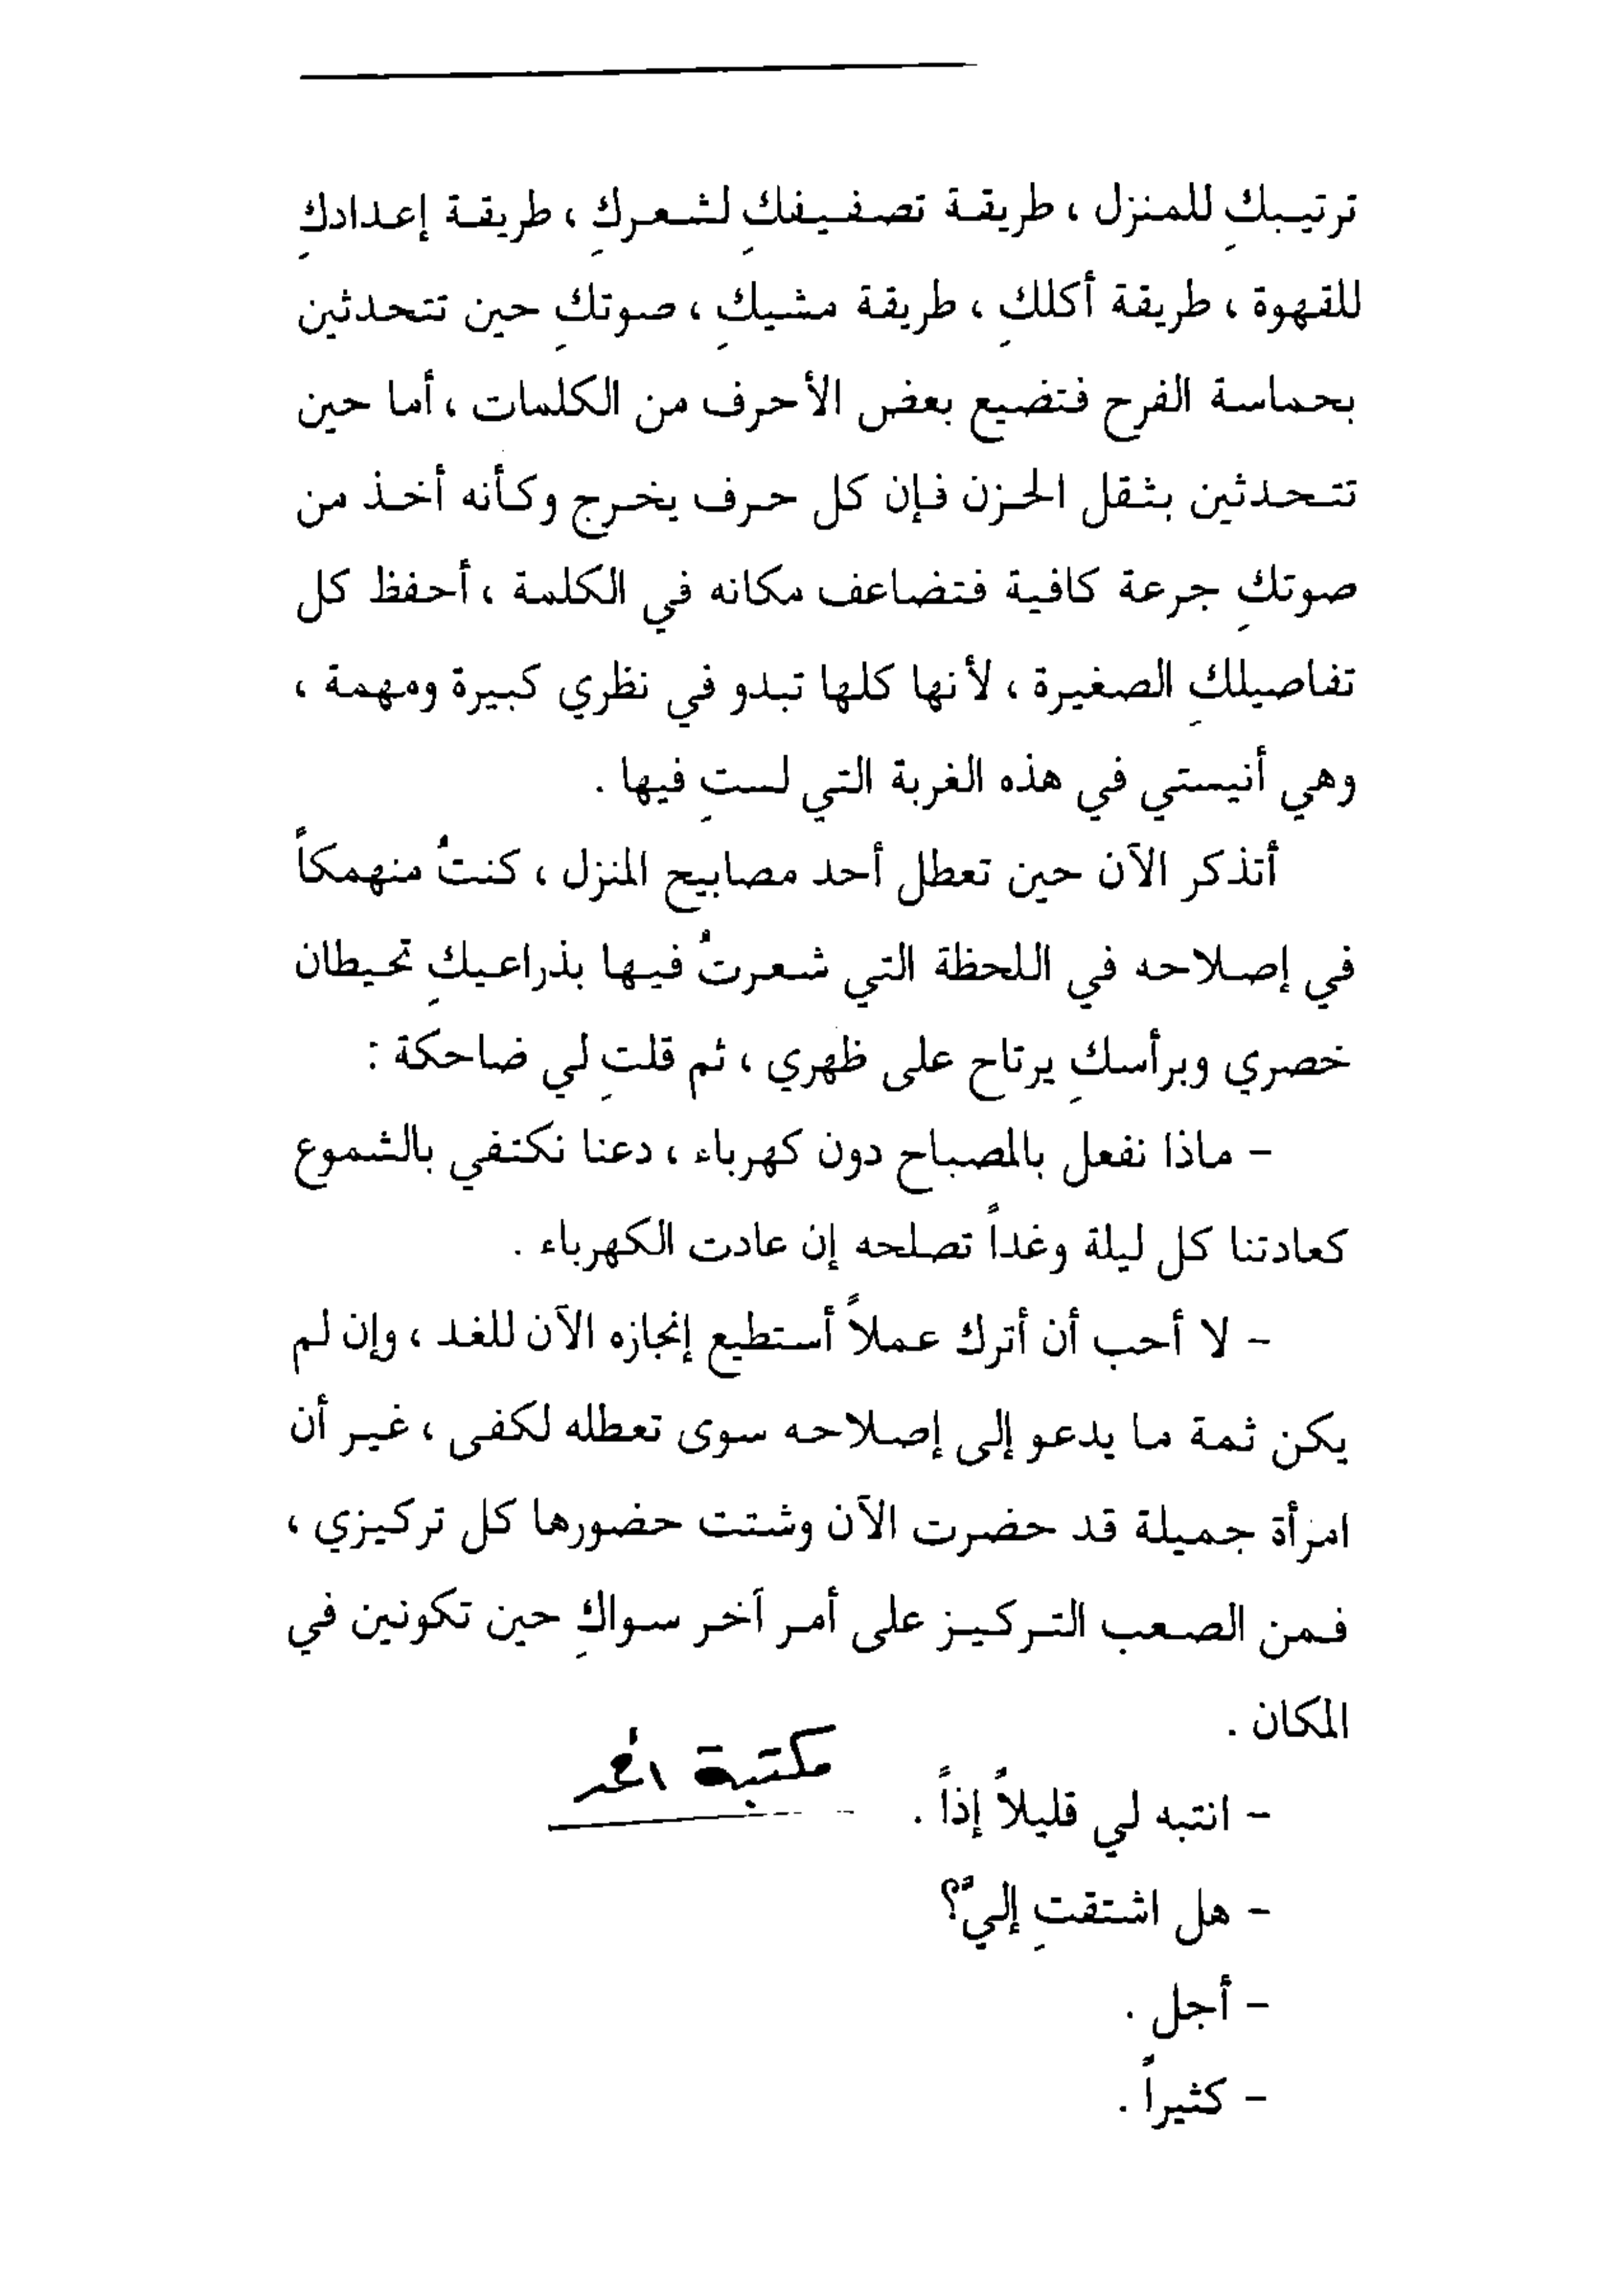 ترتيبكِ للمنزل ، طريقة تصفيفكِ لشعركِ ، طريقة إعدادكِ
للقهوة ، طريقة أكلكِ ، طريقة مشيكِ ، صوتكِ حين تتحدثين
بحماسة الفرح فتضيع بعض الأحرف من الكلمات ، أما حين
تتحدثين بثقل الحزن فإن كل حرف يخرج وكأنه أخذ من
صوتكِ جرعة كافية فتضاعف مكانه في الكلمة ، أحفظ كل
تفاصيلكِ الصغيرة ، لأنها كلها تبدو في نظري كبيرة ومهمة ،
وهي أنيستي في هذه الغربة التي لستِ فيها .
أتذكر الآن حين تعطل أحد مصابيح المنزل ، كنتُ منهمكاً
في إصلاحه في اللحظة التي شعرتُ فيها بذراعيكِ تحيطان
خصري وبرأسكِ يرتاح على ظهري ، ثم قلتِ لي ضاحكة :
- ماذا نفعل بالمصباح دون كهرباء ، دعنا نكتفي بالشموع
كعادتنا كل ليلة وغداً تصلحه إن عادت الكهرباء .
- لا أحب أن أترك عملاً أستطيع إنجازه الآن للغد ، وإن لم
يكن ثمة ما يدعو إلى إصلاحه سوى تعطله لكفى ، غير أن
امرأة جميلة قد حضرت الآن وشتت حضورها كل تركيزي ،
فمن الصعب التركيز على أمر آخر سواكِ حين تكونين في
المكان .
مكتبة
- انتبه لي قليلاً إذاً .
- هل اشتقتِ إليّ؟
- أجل .
- كثيراً .